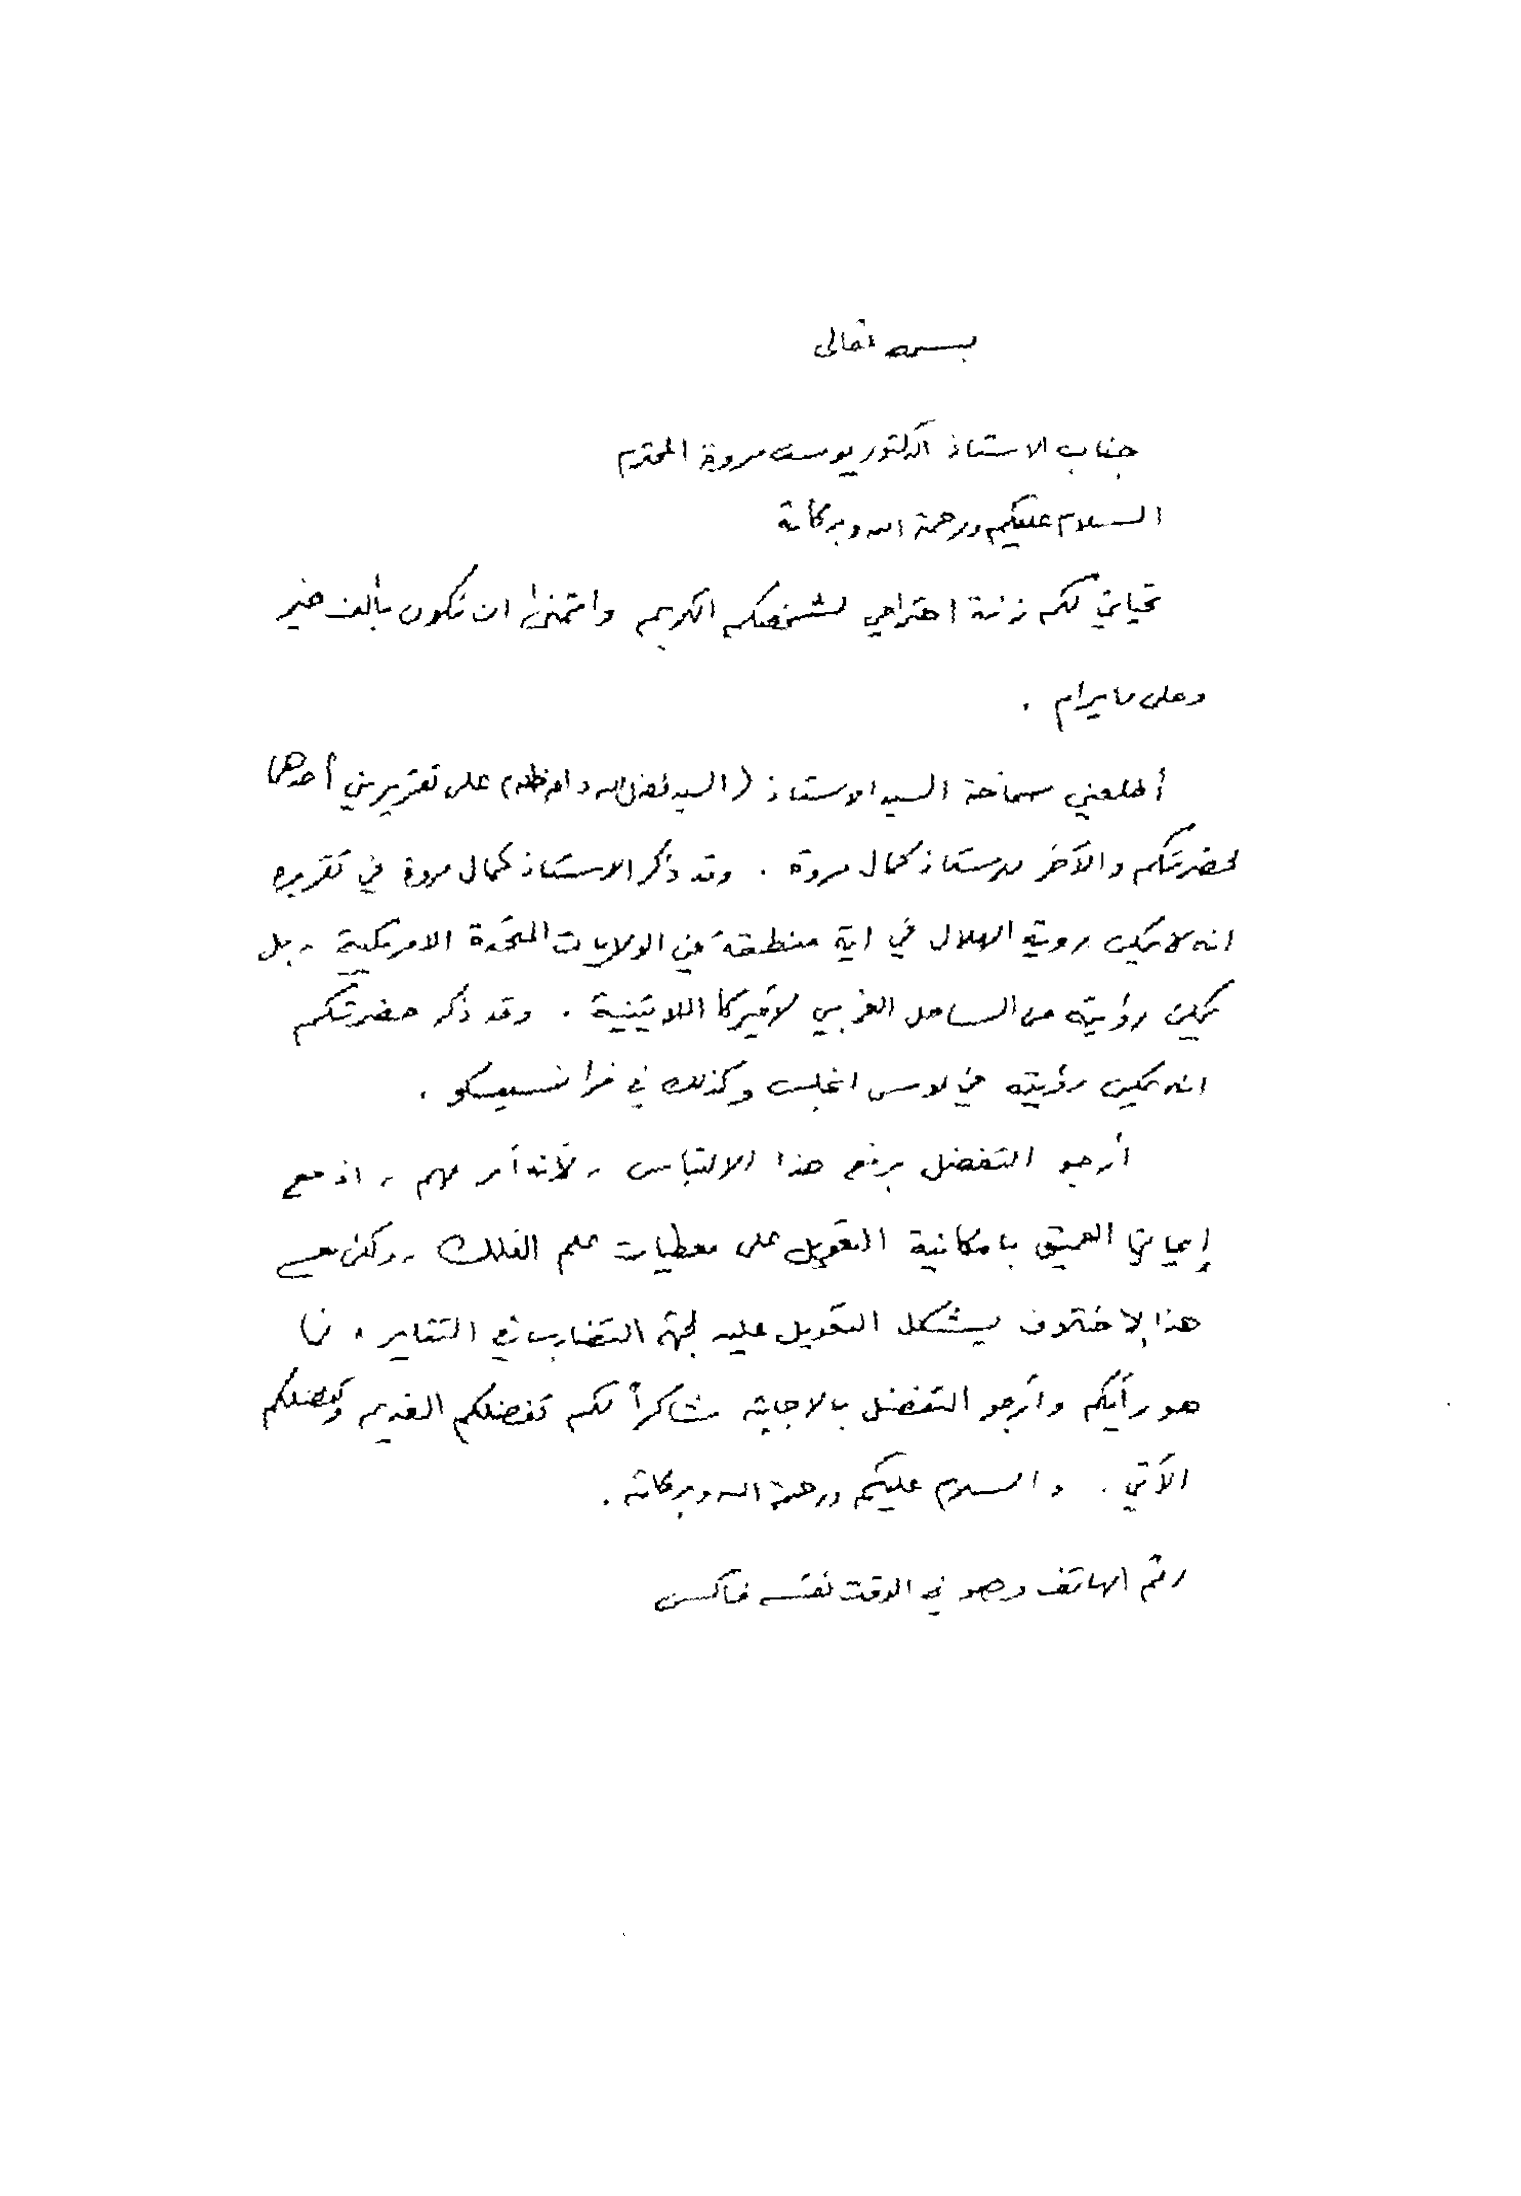 بسمه تعالى
جناب الاستاذ الدكتور يوسف مروة المحترم
السلام عليكم ورحمة الله وبركاته
تحياتي لكم زنة احترامي لشخصكم الكريم واتمنى ان تكون بألف خير
وعلى ما يرام .
أطلعني سماحة السيد الاستاذ (السيد فضل الله دام ظله) على تقريرين أحدهما
لحضرتكم والآخر للاستاذ كمال مروة . وقد ذكر الاستاذ كمال مروة في تقريره
انه لا يمكن روية الهلال في اية منطقة في الولايات المتحدة الامريكية ، بل
يمكن رؤيته من الساحل الغربي لأميركا اللاتينية . وقد ذكر حضرتكم
انه يمكن رؤيته في لوس انجلس وكذلك في فرانسيسكو .
أرجو التفضل برفع هذا الالتباس ، لأنه أمر مهم ، اذ مع
إيماني العميق بامكانية التعويل على معطيات علم الفلك ، ولكن مع
هذا الاختلاف يشكل التعويل عليه لجهة التضارب في التقارير ، فما
هو رأيكم وأرجو التفضل بالاجابة شاكراً لكم تفضلكم القديم وتفضلكم
الآتي . والسلام عليكم ورحمة الله وبركاته .
رقم الهاتف وهو في الوقت نفسه فاكس